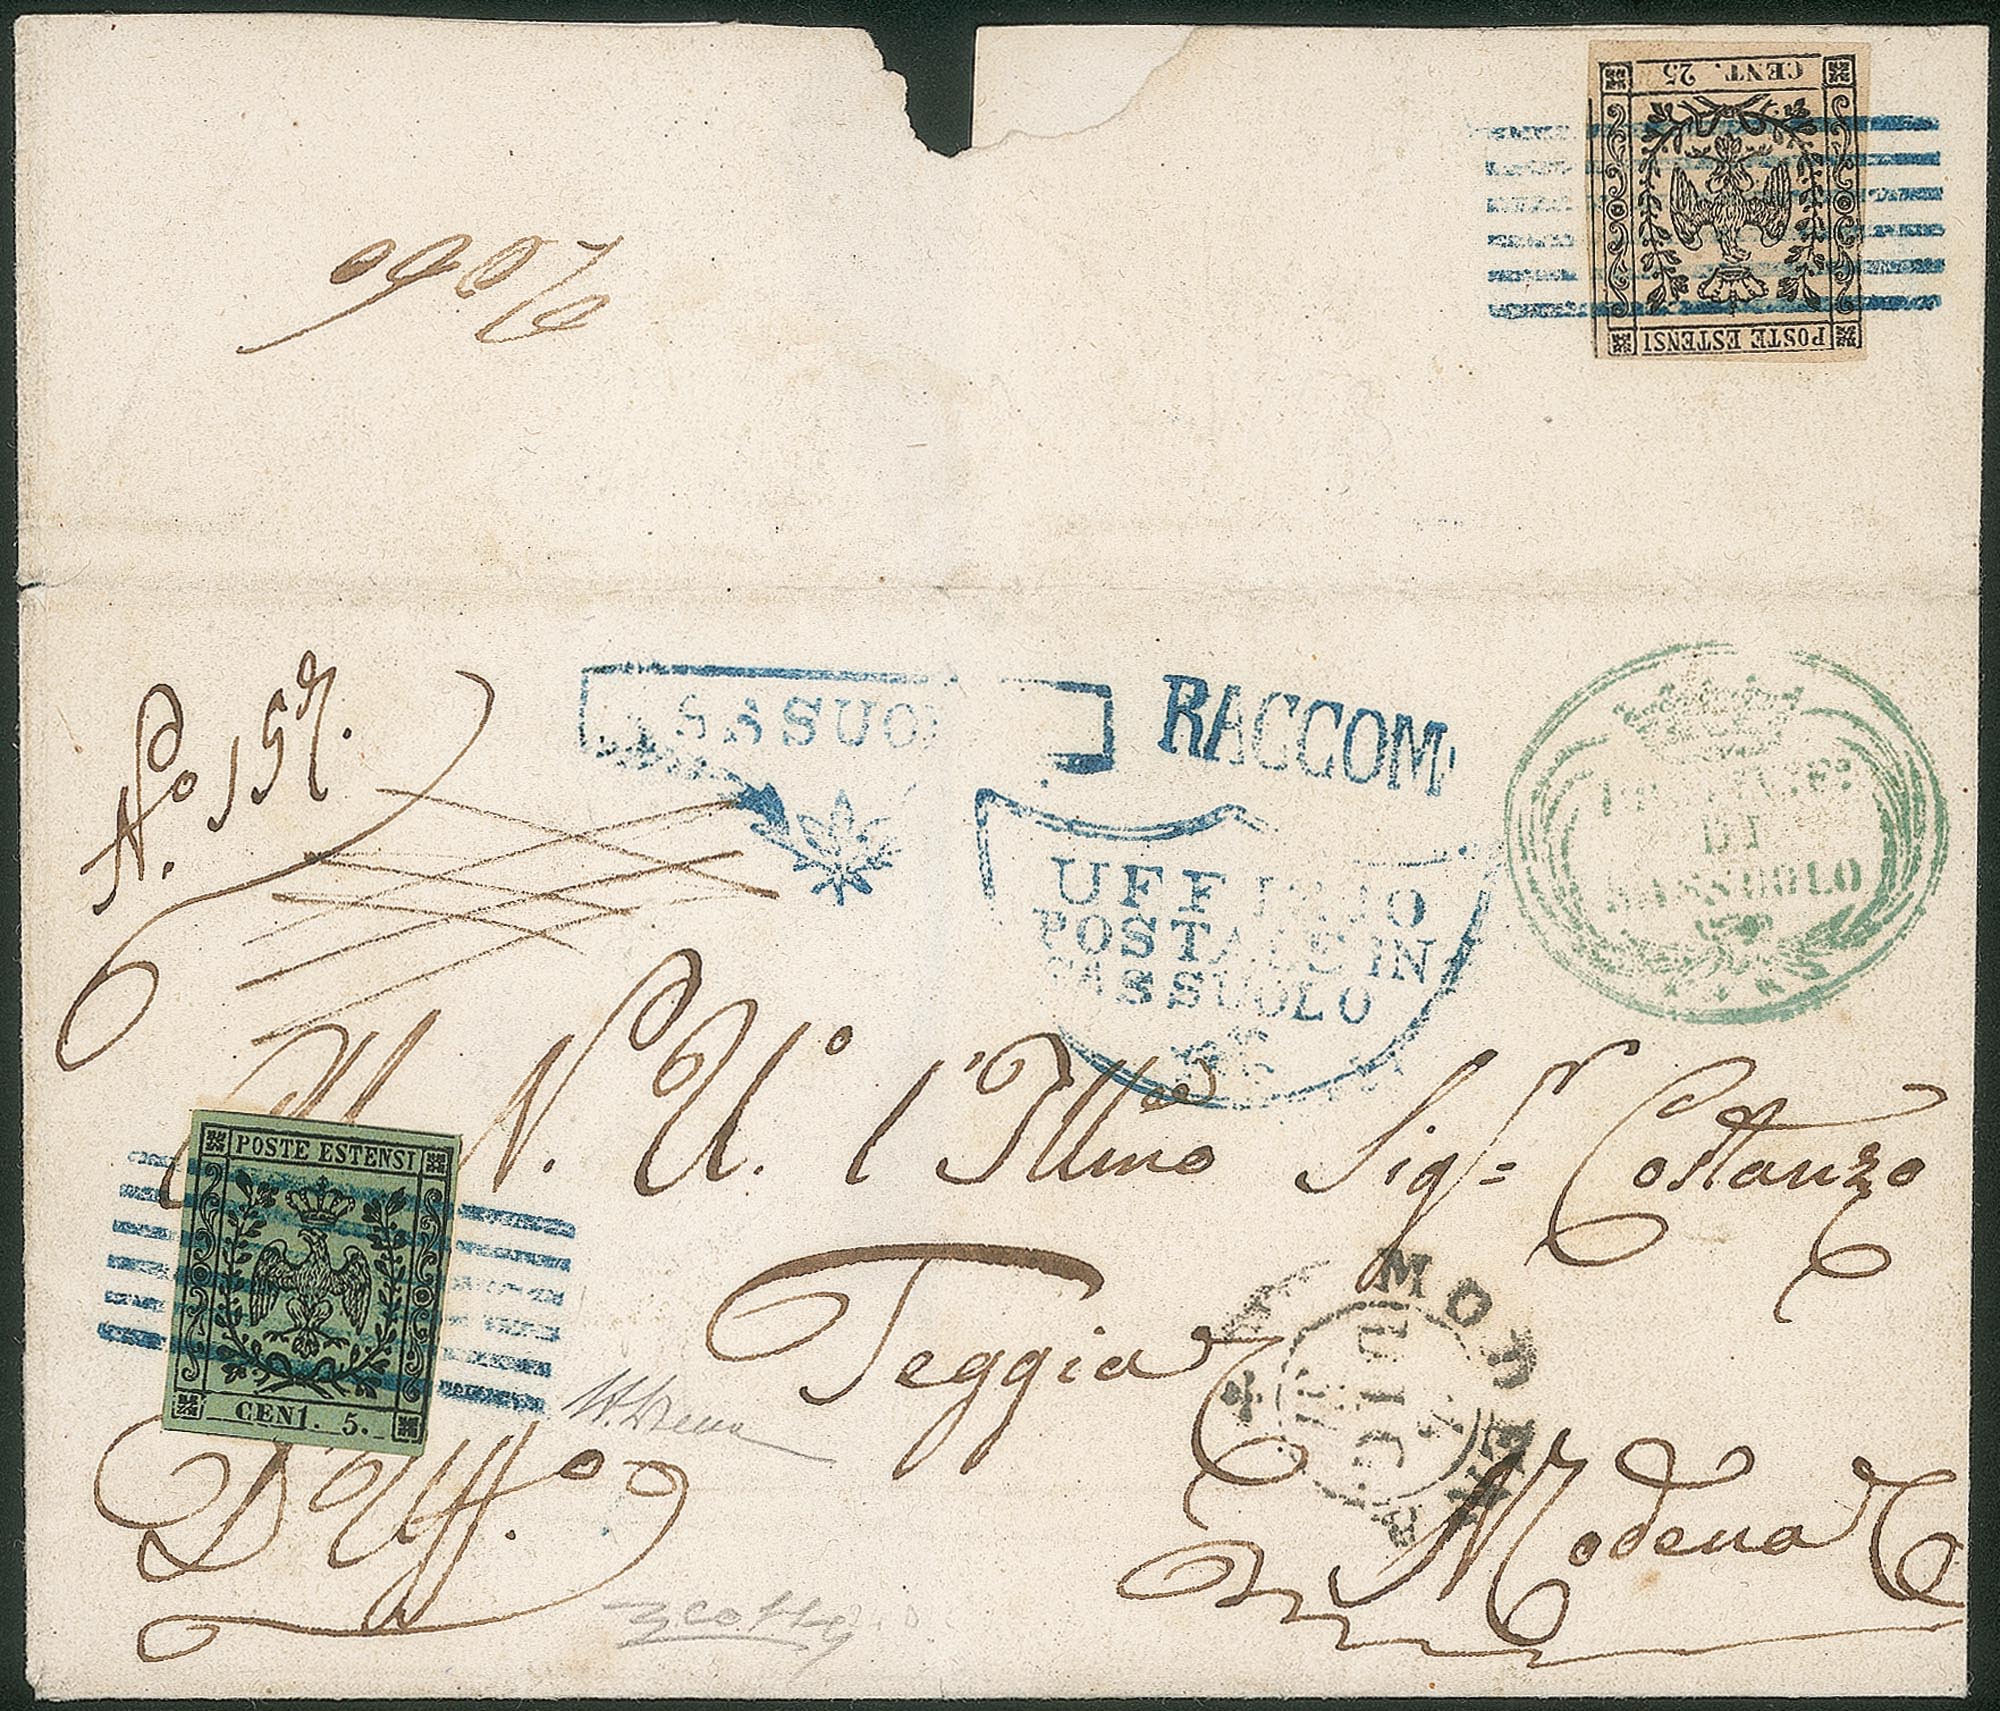 CENT. 25
POSTE ESTENSI
No. 157.
SASSUOL
RACCOM.
UFFIZIO
POSTALE IN
SASSUOLO
DI
SASSUOLO
N. U. l'Illmo Sigr Costanzo
Teggia
Modena
D'Uffo
POSTE ESTENSI
CENT. 5.
MODENA